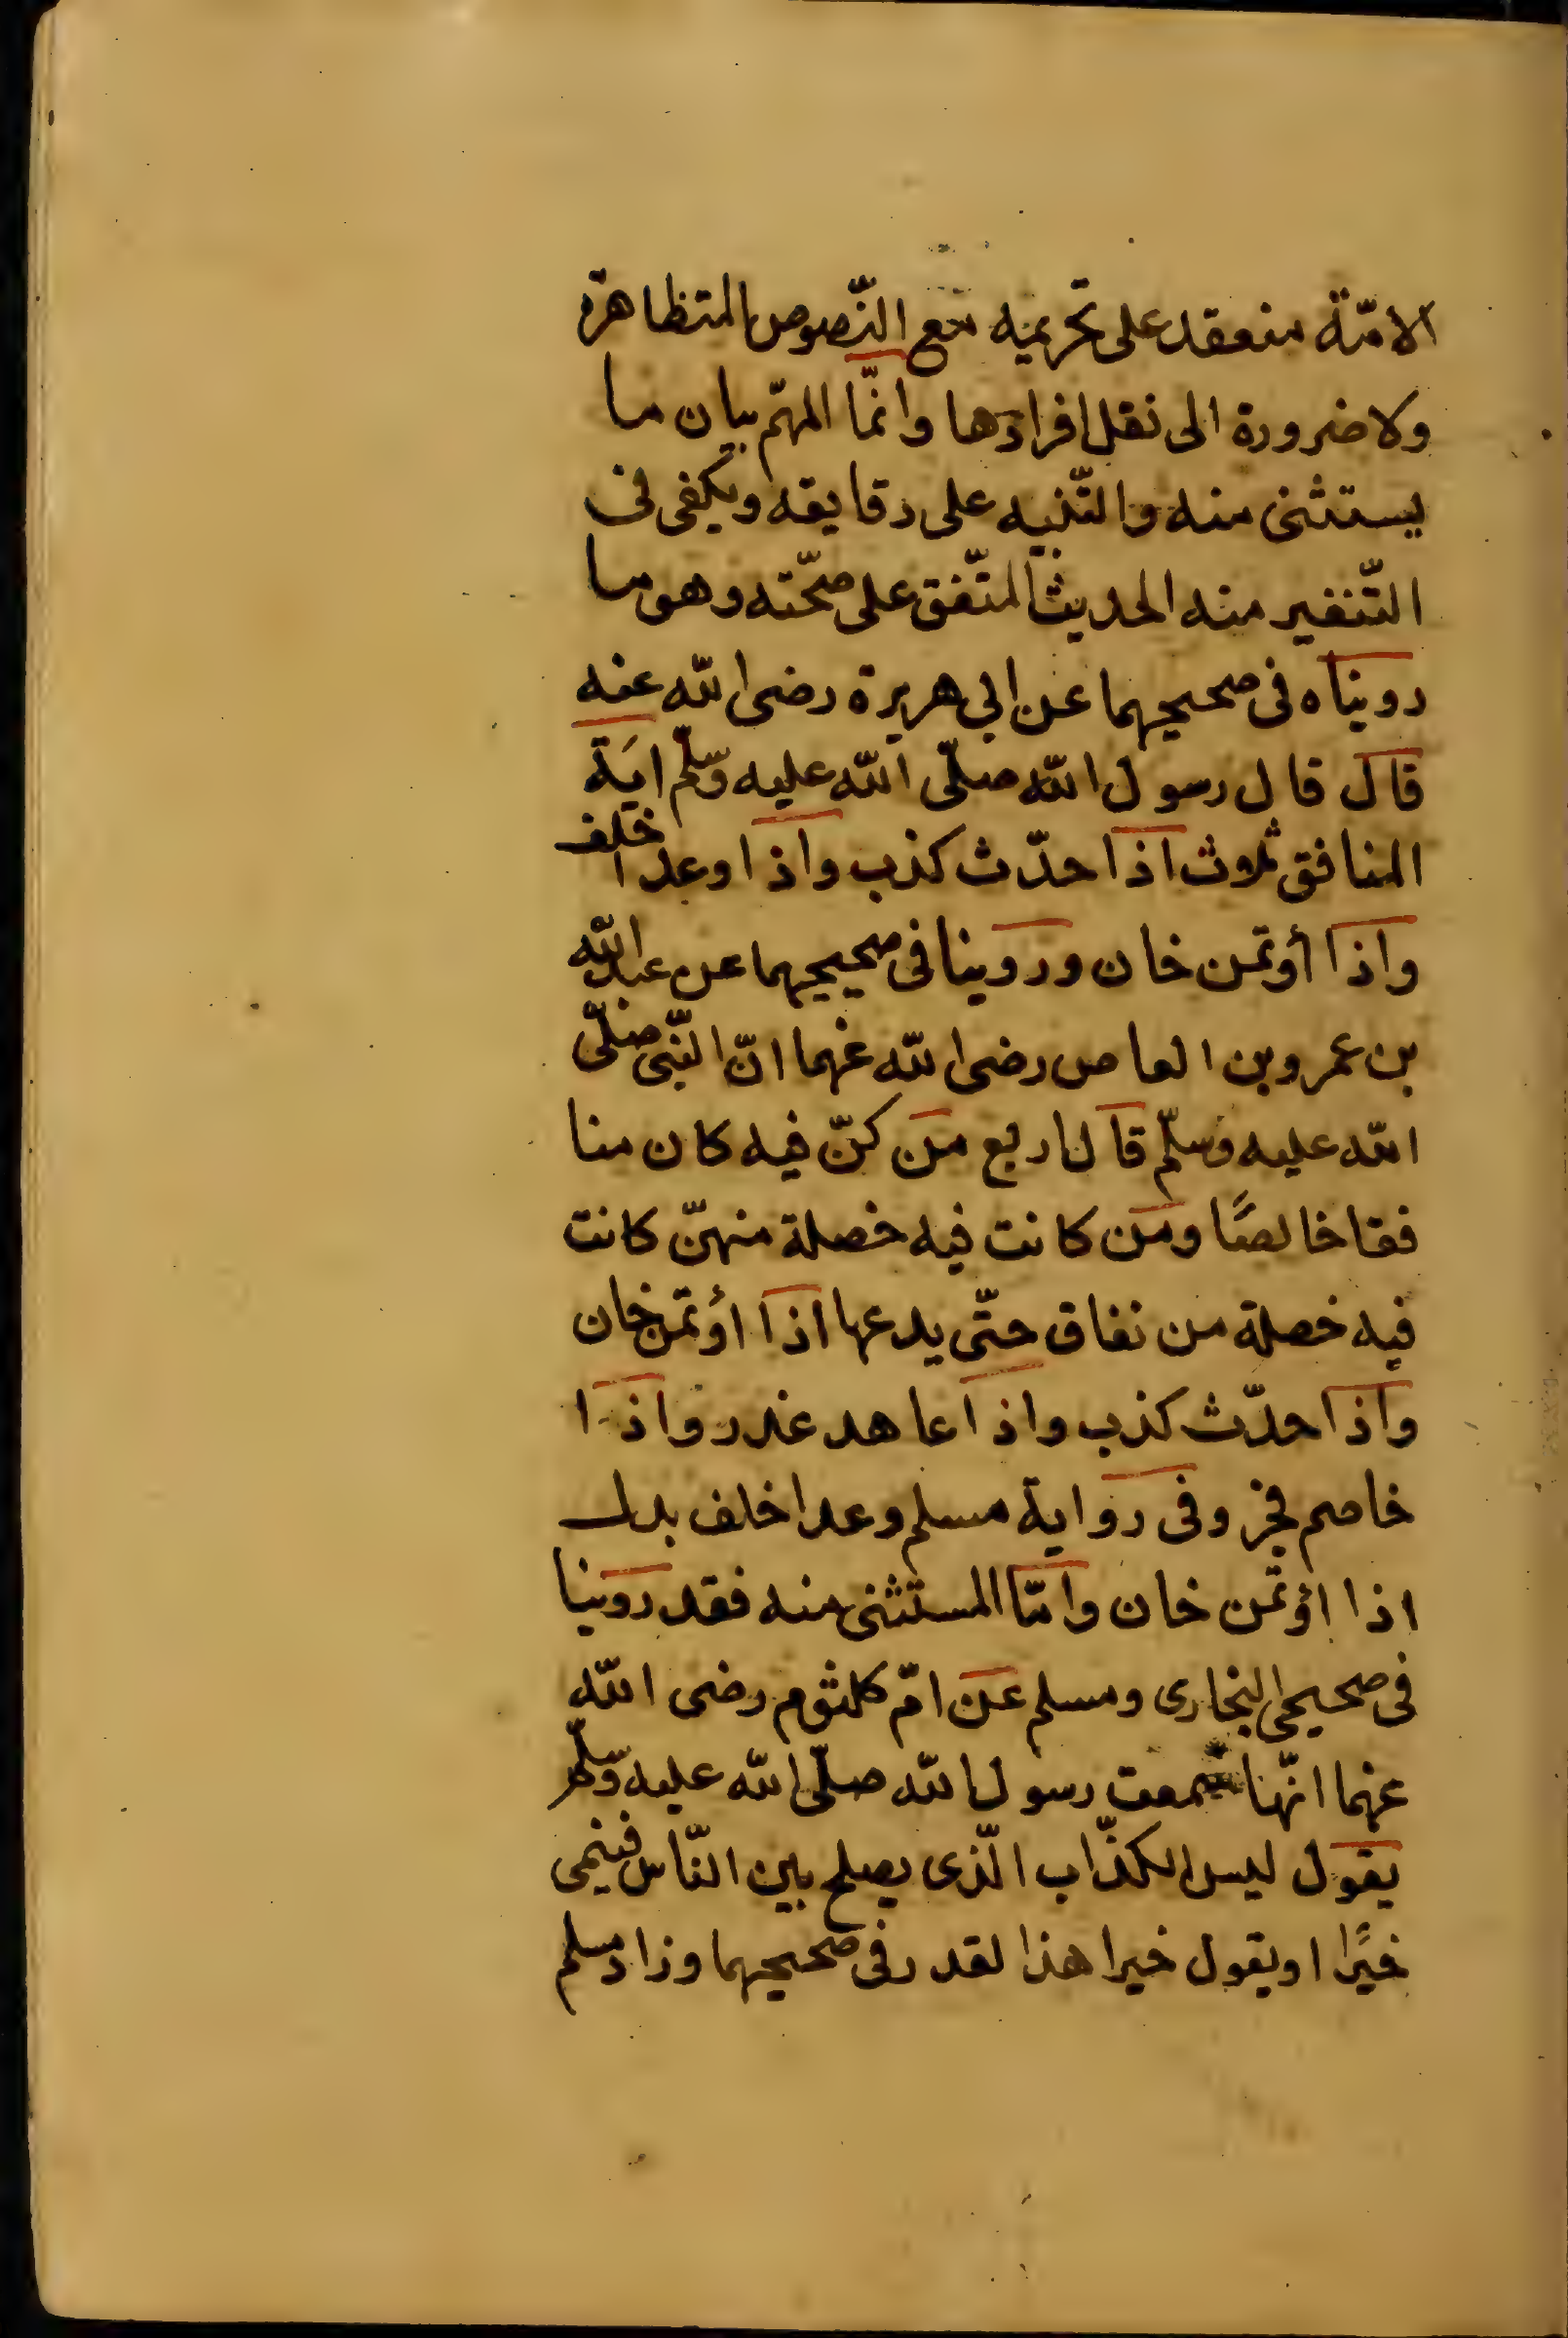 الامّة منعقد على تحريمه مع النّصوص المتظاهرة
ولا ضرورة الى نقل افرادها وانّما المهمّ بيان ما
يستثنى منه والتّنبيه على دقايقه ويكفى فى
التّنفير منه الحديث المتّفق على صحّته وهو ما
رويناه فى صحيحيهما عن ابي هريرة رضى اللّه عنه
قال قال رسول اللّه صلّى اللّه عليه وسّلّم ايَة
المنافق ثلوث اذا حدّث كذب واذا وعد اخلف
واذا أوتمن خان وروينا فى صحيحيهما عن عبد اللّه
بن عمرو بن العاص رضى اللّه عنهما انّ النّبى صلّى
اللّه عليه وسلّم قال اربع من كنّ فيه كان منا
فقا خالصًا ومن كانت فيه خصلة منهنّ كانت
فيه خصلة من نفاق حتّى يدعها اذا أؤتمن خان
واذا حدّث كذب واذا عاهد غدر واذا
خاصم فجر وفى رواية مسلم وعد اخلف بدل
اذا أؤتمن خان وامّا المستثنى منه فقد روينا
فى صحيحى البخارى ومسلم عن امّ كلثوم رضى اللّه
عنهما انّها سمعت رسول اللّه صلّى اللّه عليه وسّلّم
يقول ليس الكذّاب الّذى يصلح بين النّاس فينمى
خيرًا او يقول خيرا هذا لقدر فى صحيحيهما وزاد مسلم